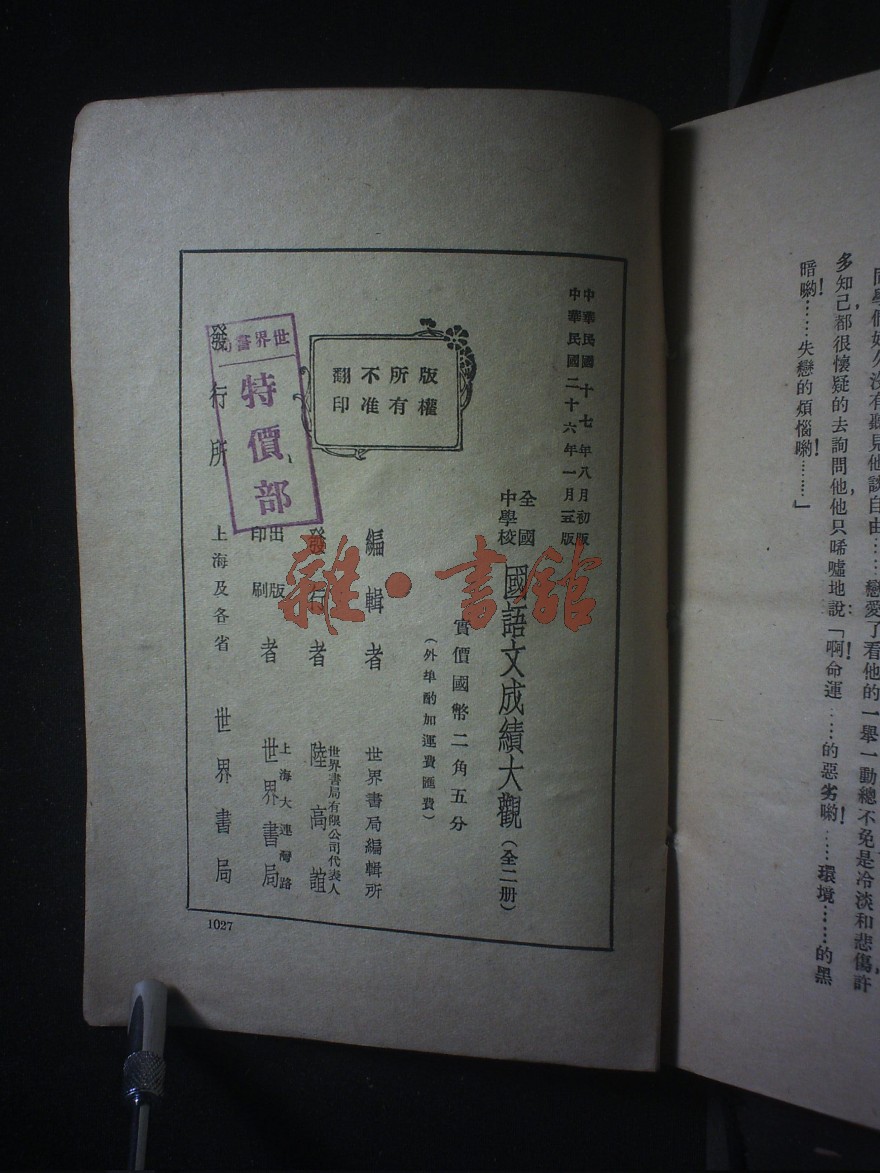 同學們好久沒有聽見他談自由……戀愛了看他的一舉一動總不免是冷淡和悲傷，許
多知己都很懷疑的去詢問他，他只唏噓地說：「啊！命運……的惡劣喲！……環境……的黑
暗喲！……失戀的煩惱喲！……」
中華民國十七年八月初版
中華民國二十六年一月五版
全國
中學校
國語文成績大觀（全二册）
實價國幣二角五分
（外埠酌加運費匯費）
版權
所有
不准
翻印
編輯者 世界書局編輯所
發行者 世界書局有限公司代表人
陸高誼
出版
印刷
者 上海大連灣路
世界書局
發行所 上海及各省 世界書局
世界書
特價部
雜·書館
1027